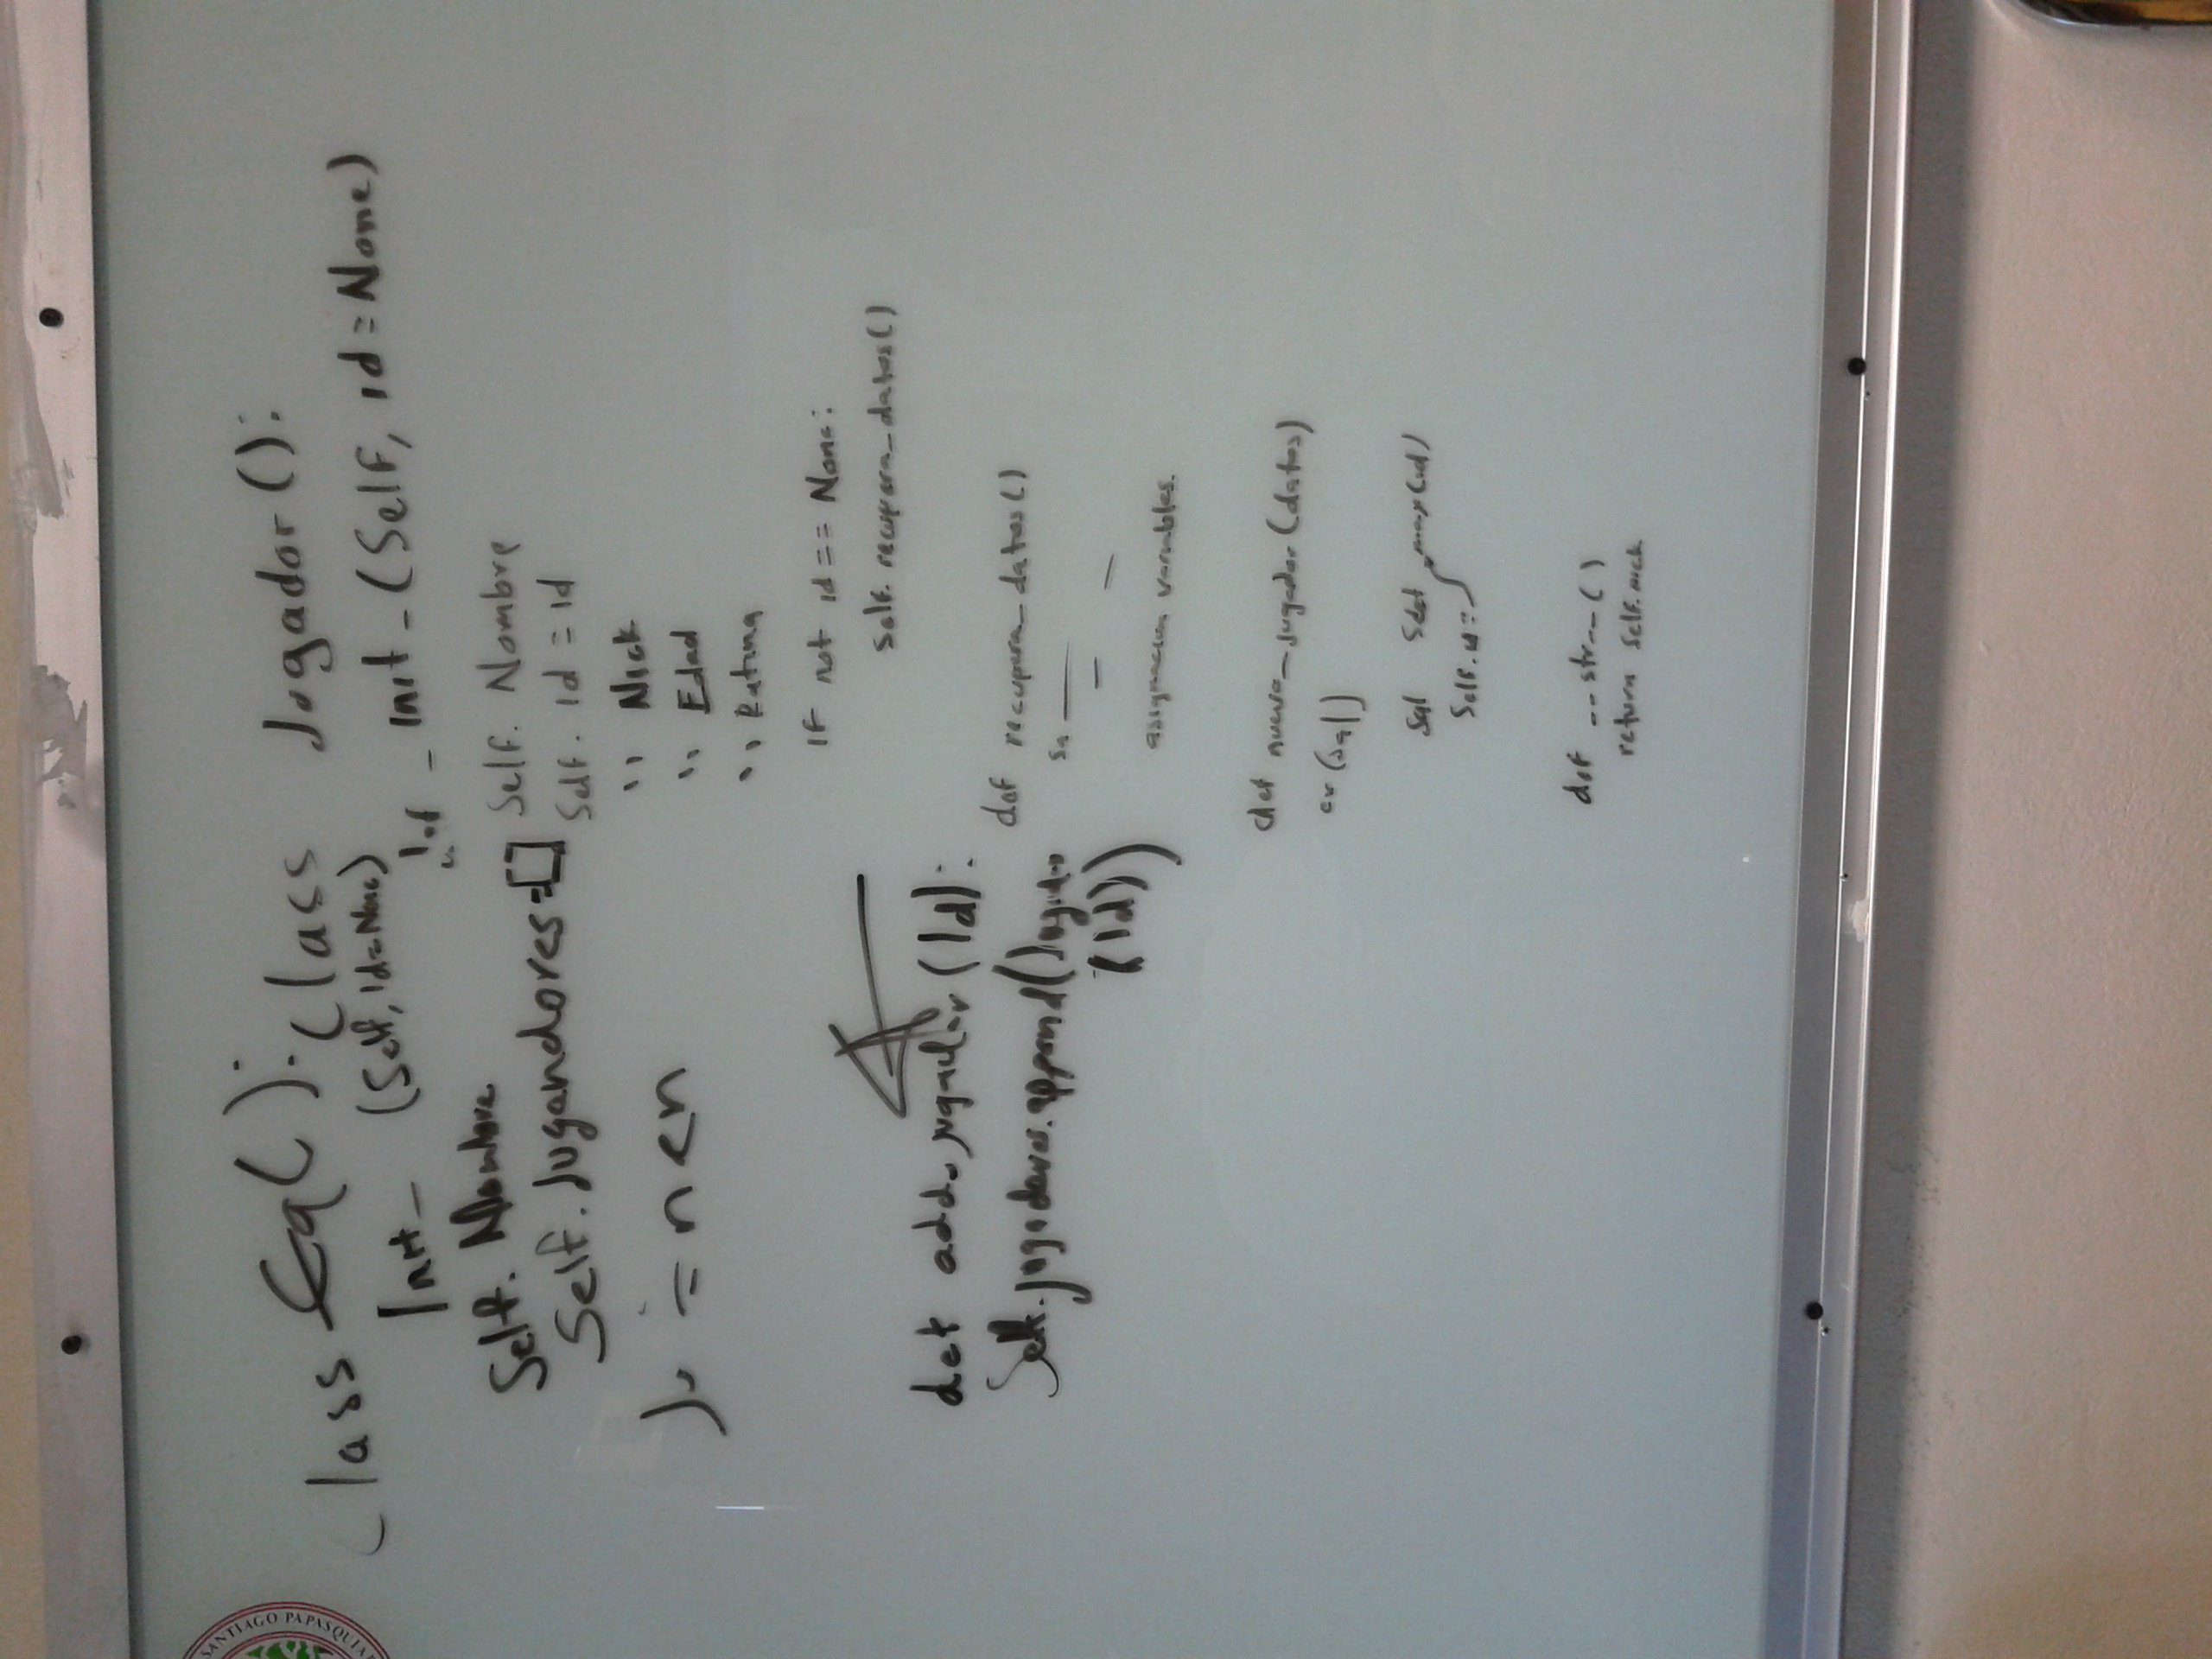 SANTIAGO PAPASQUIAR
class Eq():
Init_ (Self, Id=None)
Self. Nombre
Self. Jugandores=[]
def add_jugador (Id):
Self.jugadores.append(Jugador
(Id))
class Jugador():
def _ Init _ (Self, id=None)
Self. Nombre
Self. Id = Id
'' Nick
'' Edad
'' Rating
IF not id == None:
Self. recupera_datos()
def recupera_datos()
asignacion variables.
def nuevo_jugador(datos)
(sql)
sql max(id)
Self.id=
def __str__()
return Self.nick